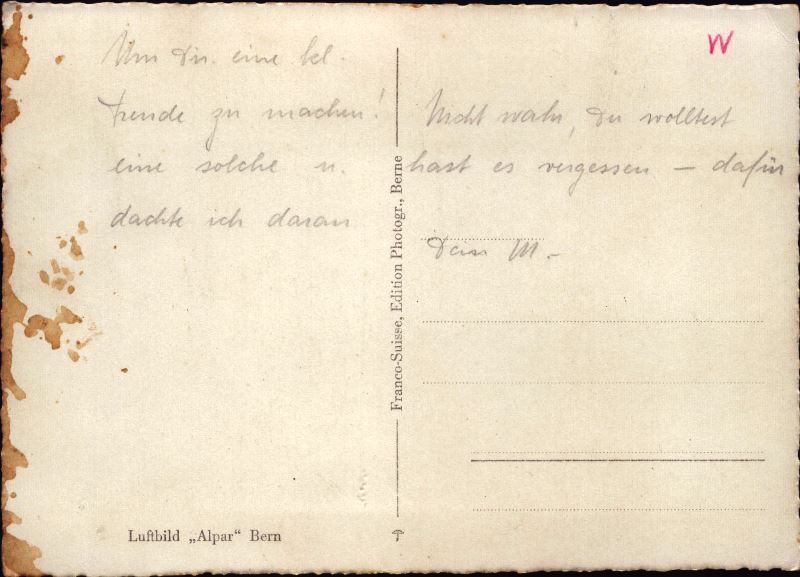 W
Um Dir eine kl.
Freude zu machen! Nicht wahr, Du wolltest
eine solche u. hast es vergessen – dafür
dachte ich daran
Dein M.–
Franco-Suisse, Edition Photogr., Berne
Luftbild „Alpar“ Bern